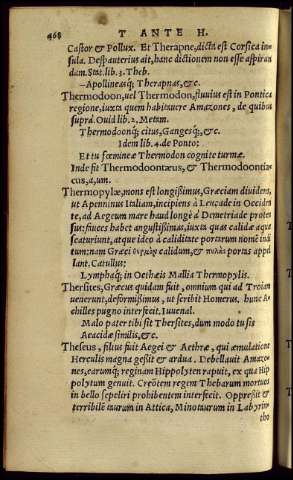 468 T ANTE H.
Castor & Pollux. Et Therapne, dicta est Corsica in-
sula. Despauterius ait, hanc dictionem non esse aspiran
dam. Stat. lib. 3. Theb.
—Apollineasq; Therapnas, &c.
Thermodoon, vel Thermodon, fluuius est in Pontica
regione, iuxta quem habitauere Amazones, de quibus
suprà. Ouid lib. 2. Metam.
Thermodonq; citus, Gangesq;, &c.
Idem lib. 4. de Ponto:
Et tu fœmineæ Thermodon cognite turmæ.
Inde fit Thermodoontæus, & Thermodoontia-
cus, a, um.
Thermopylæ, mons est longissimus, Græciam diuidens,
ut Apenninus Italiam, incipiens à Leucade in Occiden
te, ad Aegeum mare haud longè à Demetriade proten
sus: fauces habet angustissimas, iuxta quas calidæ aquæ
scaturiunt, atque ideo à caliditate portarum nomē indi
tum: nam Græci θερμὸν calidum, & πύλας portas appel
lant. Catullus:
Lymphaq; in Oethæis Mallia Thermopylis.
Thersites, Græcus quidam fuit, omnium qui ad Troiam
uenerunt, deformissimus, ut scribit Homerus. hunc A-
chilles pugno interfecit. Iuuenal.
Malo pater tibi sit Thersites, dum modo tu sis
Aeacidæ similis, &c.
Theseus, filius fuit Aegei & Aethræ, qui æmulatione
Herculis magna gessit & ardua. Debellauit Amazo-
nes, earumq; reginam Hippolyten rapuit, ex qua Hip
polytum genuit. Creōtem regem Thebarum mortuos
in bello sepeliri prohibentem interfecit. Oppressit &
terribilē taurum in Attica, Minotaurum in Labyrin-
tho